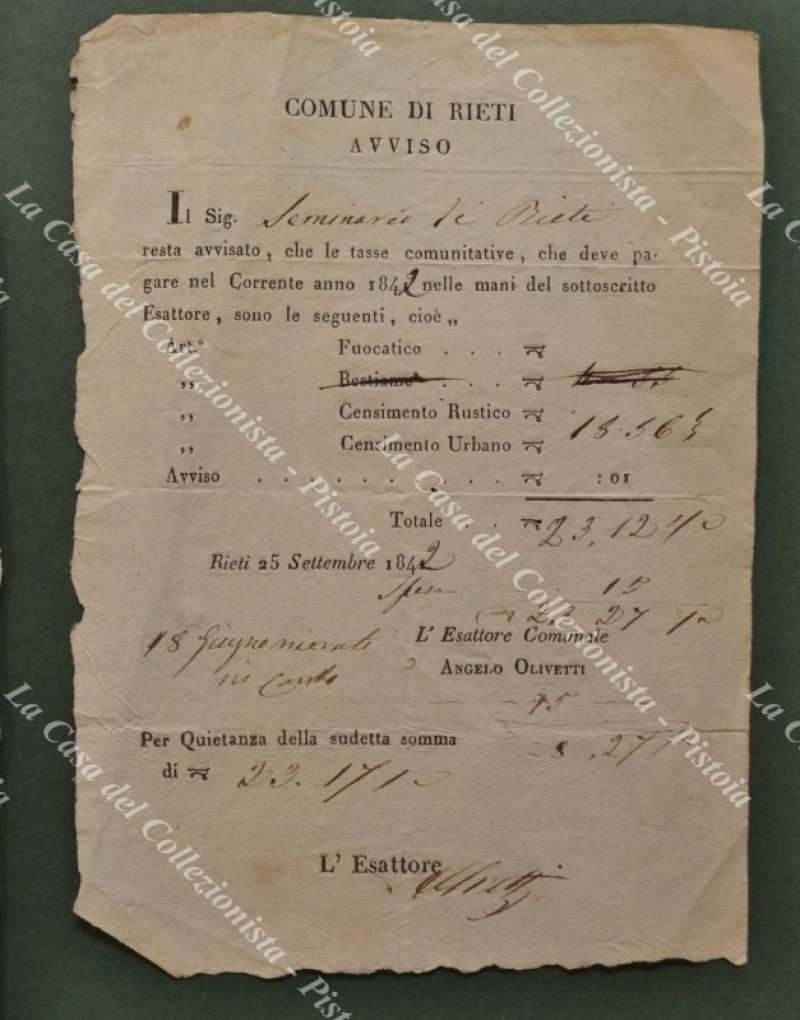 COMUNE DI RIETI
AVVISO
Il Sig. Seminario di Rieti
resta avvisato, che le tasse comunitative, che deve pa-
gare nel Corrente anno 1842 nelle mani del sottoscritto
Esattore, sono le seguenti, cioè „
Art.° Fuocatico . . .
„ Bestiame . . .
„ Censimento Rustico
„ Censimento Urbano 18.56
Avviso . . . . . . . . . :01
Totale . . 23.12
Rieti 25 Settembre 1842
Spese 15
27
18 Giugno
L' Esattore Comunale
ANGELO OLIVETTI
Per Quietanza della sudetta somma
di 23.17
L' Esattore
La Casa del Collezionista - Pistoia